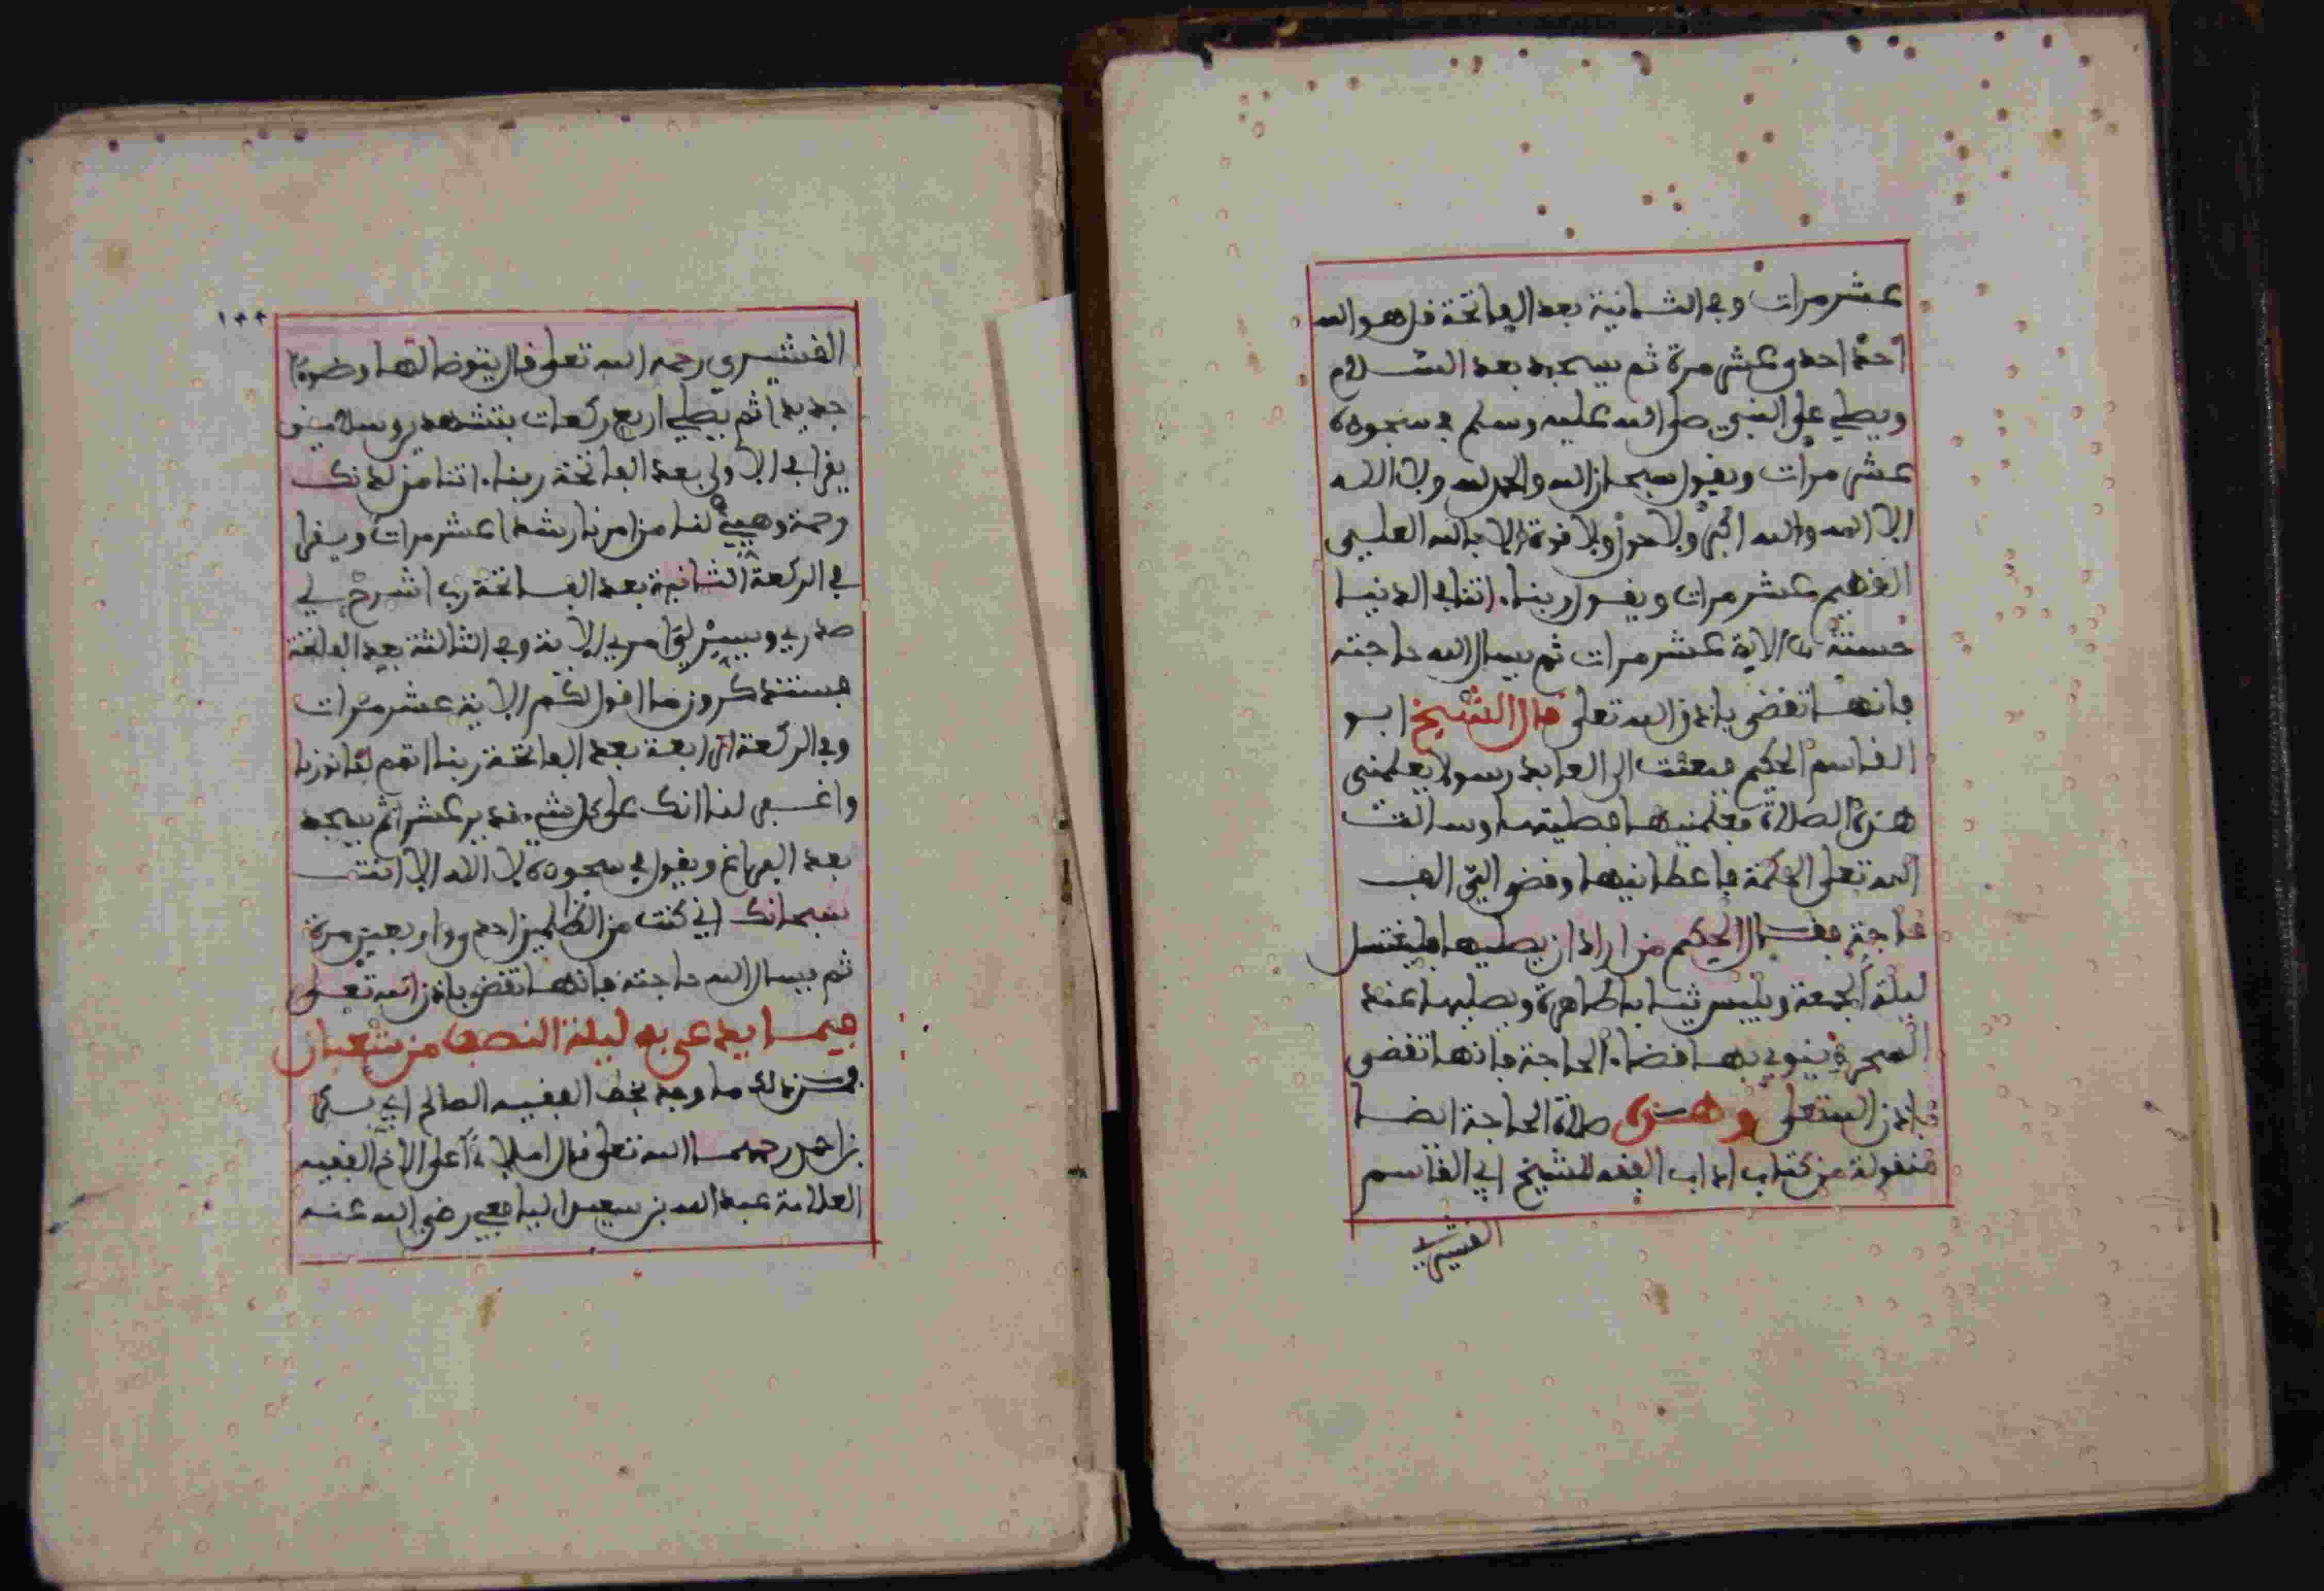 عشر مرات وفي الثانية بعد الفاتحة قل هو الله
أحد احدى عشر مرة ثم يسجد بعد السلام
ويصلي على النبي صلى الله عليه وسلم في سجوده
عشر مرات ويقول سبحان الله والحمد لله ولا اله
الا الله والله اكبر ولا حول ولا قوة الا بالله العلي
العظيم عشر مرات ويقول ربنا ءاتنا في الدنيا
حسنة الاية عشر مرات ثم يسال الله حاجته
فانها تقضى باذن الله تعلى قال الشيخ ابو
القاسم الحكيم فبعثت الى العابد رسولا يعلمني
هذه الصلاة فعلمنيها فصليتها وسالت
الله تعلى الحكمة فاعطانيها وقضى لي الف
حاجة فقال الحكيم من اراد ان يصليها فليغتسل
ليلة الجمعة ويلبس ثيابه طاهرة ويصليها عند
السحر وينوي بها قضاء الحاجة فانها تقضى
باذن الله تعلى وهذه صلاة الحاجة ايضا
منقولة من كتاب اداب الفقه للشيخ ابي القاسم
القشيري
القشيري رحمه الله تعلى قال يتوضا لها وضوءا
جديدا ثم يصلي اربع ركعات بتشهدين وسلامين
يقرا في الاولى بعد الفاتحة ربنا ءاتنا من لدنك
رحمة وهيئ لنا من امرنا رشدا عشر مرات ويقرا
في الركعة الثانية بعد الفاتحة رب اشرح لي
صدري ويسر لي امري الاية وفي الثالثة بعد الفاتحة
فستذكرون ما اقول لكم الاية عشر مرات
وفي الركعة الرابعة بعد الفاتحة ربنا اتمم لنا نورنا
واغفر لنا انك على كل شيء قدير عشرا ثم يسجد
بعد الفراغ ويقول في سجوده لا اله الا انت
سبحانك اني كنت من الظالمين احد واربعين مرة
ثم يسال الله حاجته فانها تقضى باذن الله تعلى
فيما يدعى به ليلة النصف من شعبان
فمن ذلك ما وجد بخط الفقيه الصالح ابي بكر
بن احمد رحمهما الله تعلى قال املاء على الاخ الفقيه
العلامة عبد الله بن سعيد اليافعي رضي الله عنه